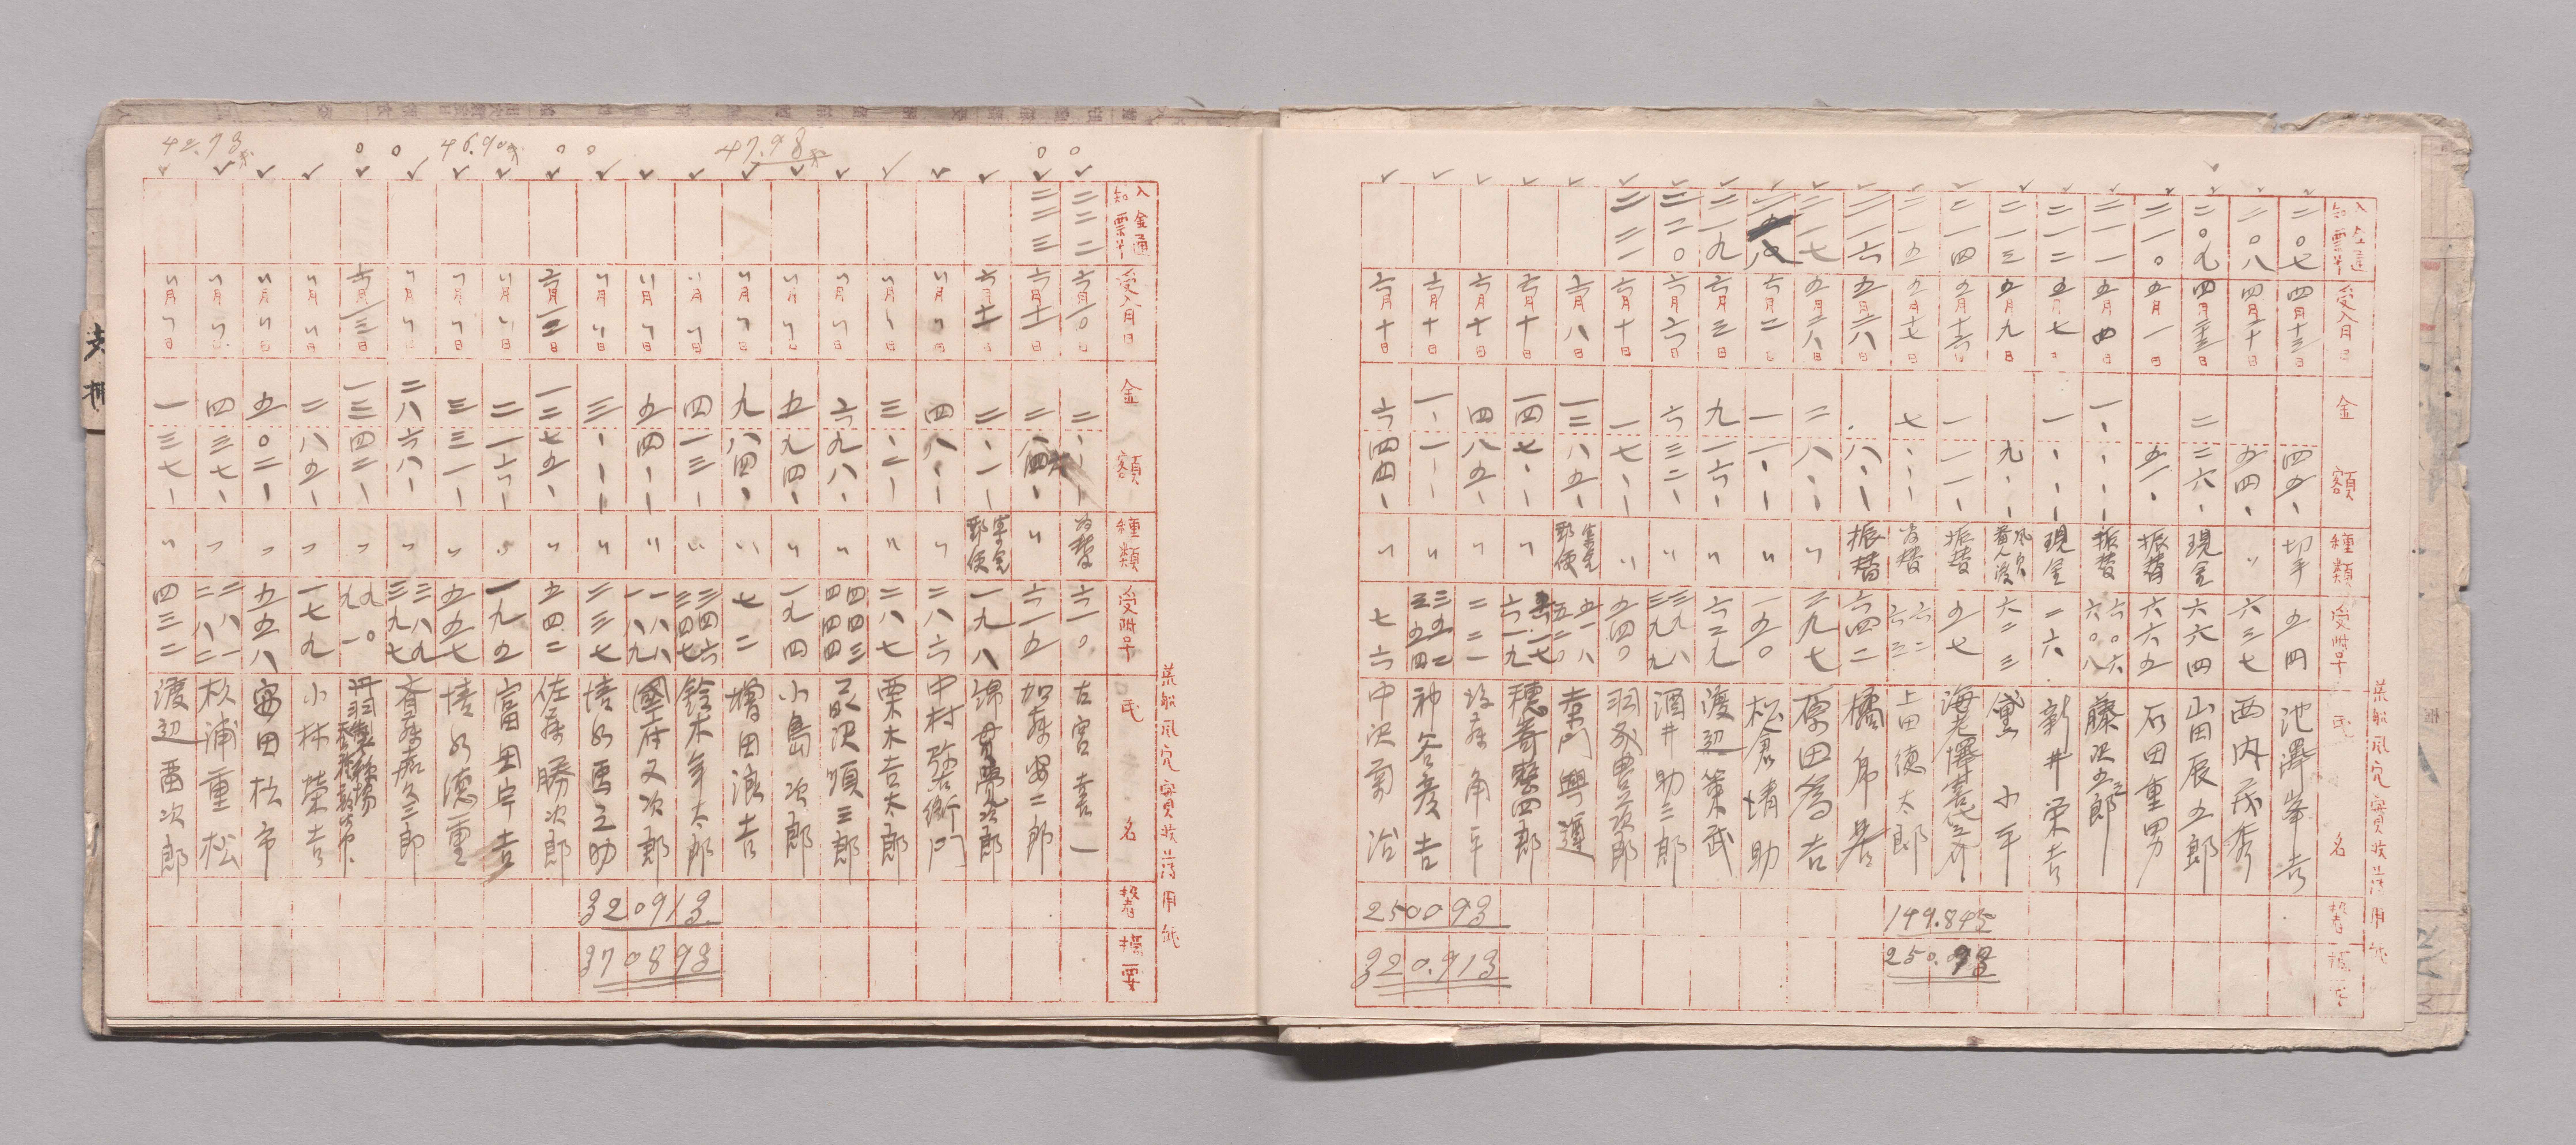 荒船風穴實收簿用紙
入金通知票 受入月日 金額 種類 受附号 氏名 摘要
二〇七 四月十三日 四五、 切手 五四 池澤峯吉
二〇八 四月二十日 五四、 〃 六三七 西内茂秀
二〇九 四月 日 二三六、 現金 六六四 山田辰五郎
二一〇 五月一日 五一、 振替 六六五 石田重男
二一一 五月四日 一、、、 振替 六〇六 六〇八 藤沢五郎
二一二 五月七日 一、、、 現金 二六 新井栄吉
二一三 五月九日 九、、 六二三 黛小平
二一四 五月十六日 一一一、 振替 五七
二一五 五月十七日 七、、、 為替 六二 六三 上田德太郎
二一六 五月二八日 八、、 振替 六四二 橘
二一七 五月二八日 二八、、 〃 二九七 原田為吉
二一八 六月二日 一一、、 〃 一五〇 松倉清助
二一九 六月三日 九一六、 〃 六二九 渡辺策武
二二〇 六月六日 六三二、 〃 三九八 三九九 酒井助三郎
二二一 六月十日 一七、、 〃 五四〇
六月八日 一三八五、 郵便 五一八 五二〇 桒門興蓮
六月十日 一四七、、 〃 六一七 六一九 穂苅 四郎
六月十日 四八五、 〃 二二一 後藤角平
六月十日 一、一、、 〃 三五二 三五四 神谷彦吉
六月十日 六四四、 〃 七六 中沢菊治
149.845
250.93
250093
320.913
荒船風穴實收簿用紙
入金通知票 受入月日 金額 種類 受附号 氏名 摘要
二二二 六月一〇日 二、、、 為替 六一〇 古宮喜一
二二三 六月十一日 二、 〃 六一五 加藤安二郎
六月十一日 二、一、 郵便 一九八 錦貫 次郎
〃月〃日 四八、、 〃 二八六 中村弥右衛門
〃月〃日 三、二、 〃 二八七 栗木吉太郎
〃月〃日 六九八、 〃 四四三 四四四 順三郎
〃月〃日 五九四、 〃 一九四 小島次郎
〃月〃日 九八四、 〃 七二 増田浪吉
〃月〃日 四一三、 〃 三四六 三四七 鈴木年太郎
〃月〃日 五四、、 〃 一八八 一八九 國府又次郎
〃月〃日 三、、、 〃 二三七 清水 之助
六月一二日 一二七五、 〃 五四二 佐藤勝次郎
〃月〃日 二一六、 〃 一九五 富田宇吉
〃月〃日 三三一、 〃 五五七 清水德重
〃月〃日 二八六八、 〃 三八九 三九七 斉藤 三郎
六月一三日 一三四二、 〃 九〇 九一 丹羽製種場
〃月〃日 二八五、 〃 一七九 小林榮吉
〃月〃日 五〇二、 〃 五五八 富田松市
〃月〃日 四三七、 〃 二八一 二八二 杉浦重松
〃月〃日 一三七、 〃 四三二 渡辺酉次郎
47.98
46.90
42.73
320913
370893